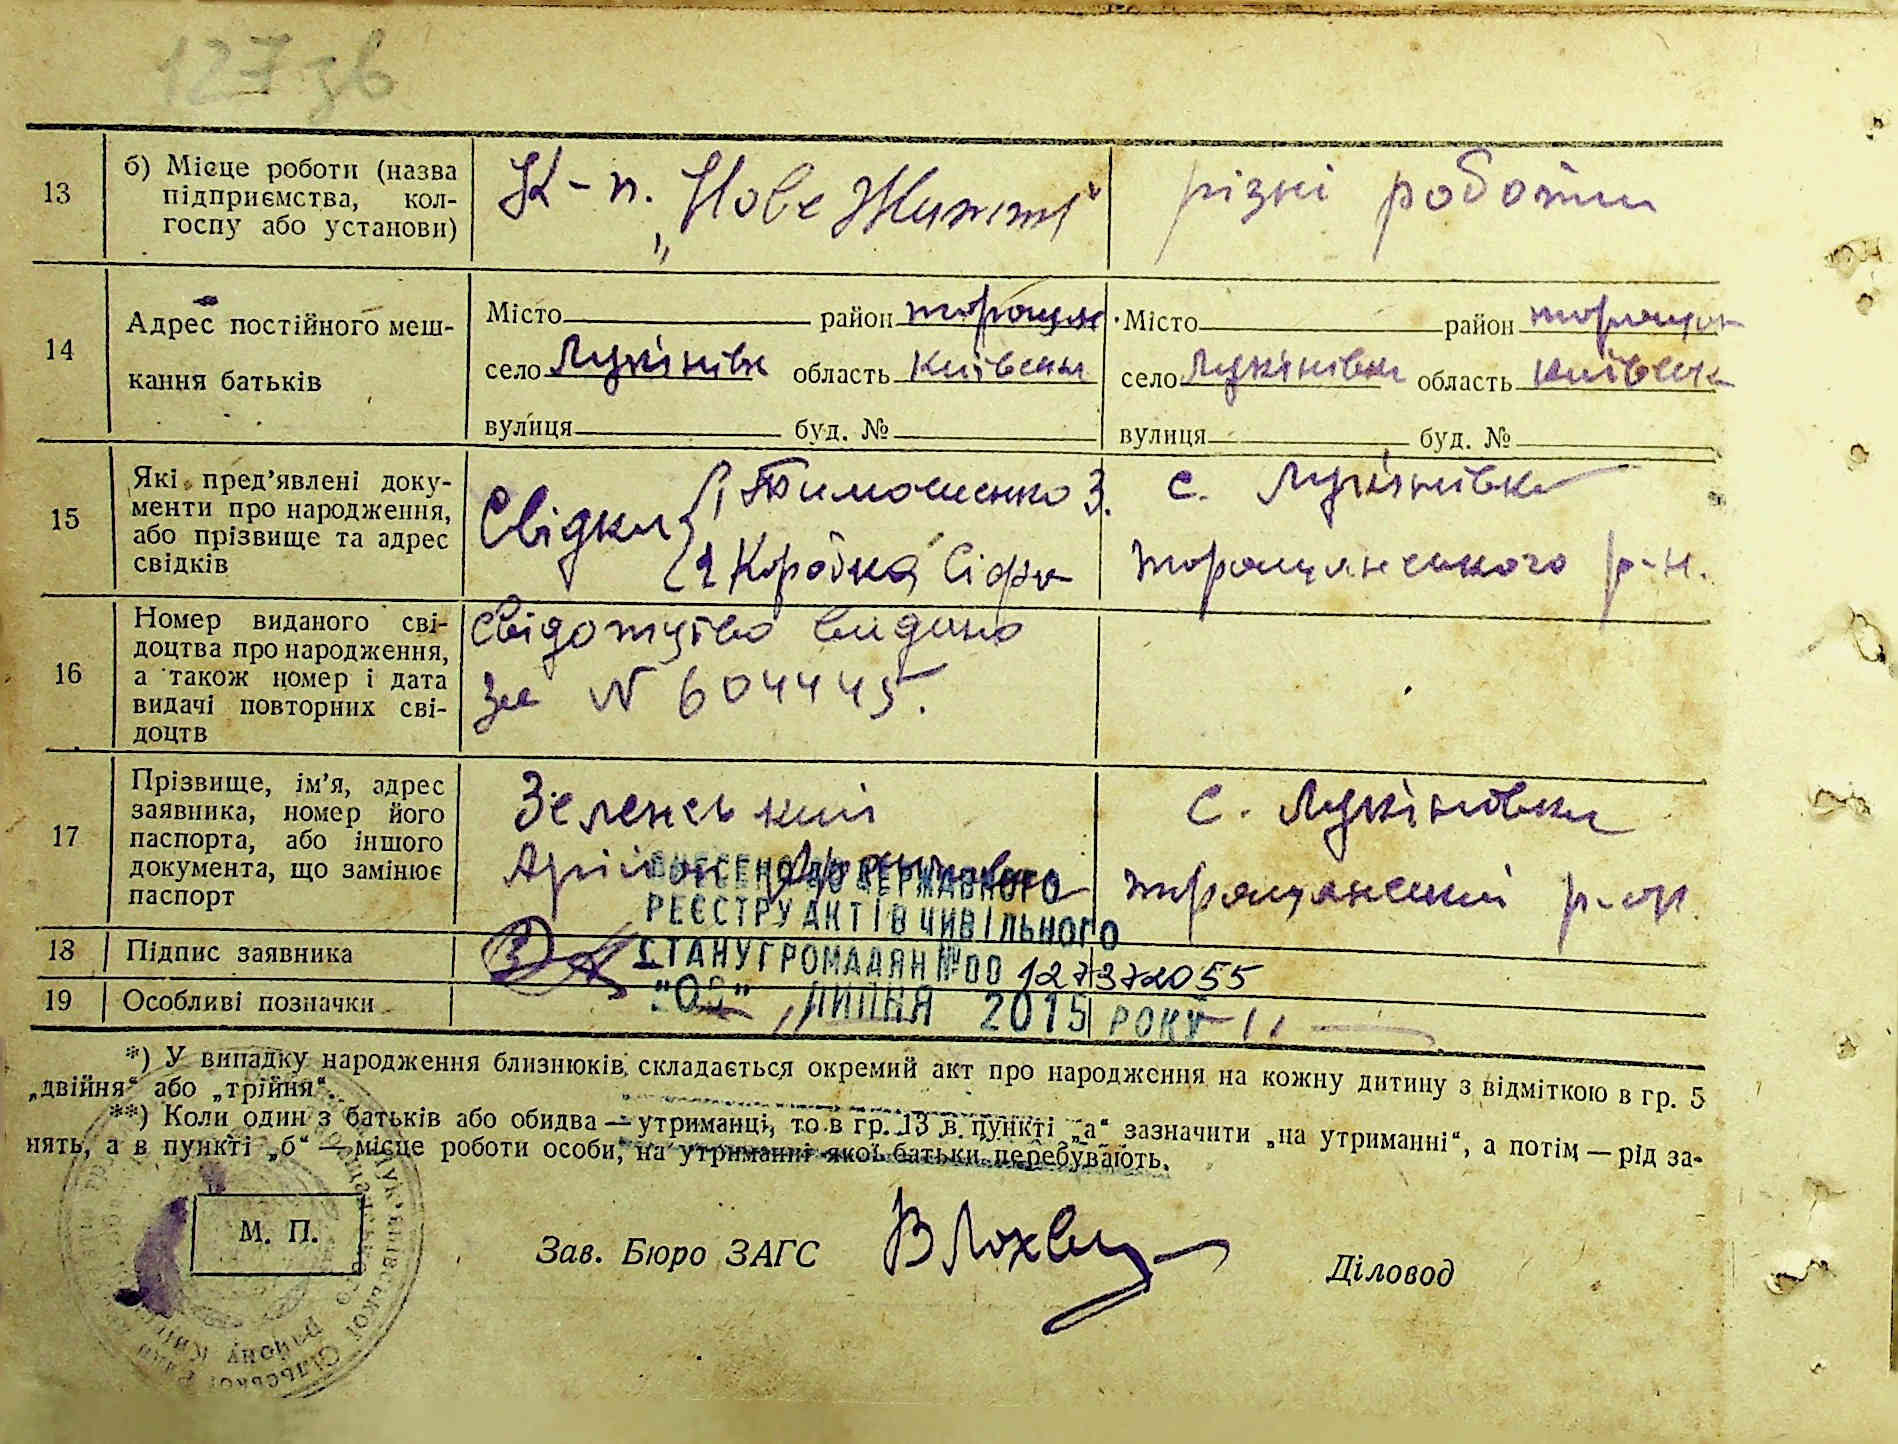 127 зв
13
б) Місце роботи (назва
підприємства, кол-
госпу або установи)
К-п. „Нове Життя"
різні роботи
14
Адрес постійного меш-
кання батьків
Місто район таращан
село Лук'янівк область Київська
вулиця буд. №
Місто район таращан
село Лук'янівка область Київська
вулиця буд. №
15
Які пред'явлені доку-
менти про народження,
або прізвище та адрес
свідків
Свідки 1 Тимошенко З.
2 Коробка Сіфа
с. Лук'янівка
таращанського р-н.
16
Номер виданого сві-
доцтва про народження,
а також номер і дата
видачі повторних сві-
доцтв
Свідотцтво видано
за № 604445.
17
Прізвище, ім'я, адрес
заявника, номер його
паспорта, або іншого
документа, що замінює
паспорт
Зеленський
с. Лук'янівка
таращанський р-н.
18
Підпис заявника
19
Особливі позначки
ВНЕСЕНО ДО ДЕРЖАВНОГО
РЕЄСТРУ АКТІВ ЦИВІЛЬНОГО
СТАНУ ГРОМАДЯН № 00 127372055
ЛИПНЯ 2015 РОКУ
*) У випадку народження близнюків, складається окремий акт про народження на кожну дитину з відміткою в гр. 5
„двійня" або „трійня".
**) Коли один з батьків або обидва — утриманці, то в гр. 13 в пункті „а" зазначити „на утриманні", а потім — рід за-
нять, а в пункті „б" — місце роботи особи, на утриманні якої батьки перебувають.
М. П.
Зав. Бюро ЗАГС
Діловод